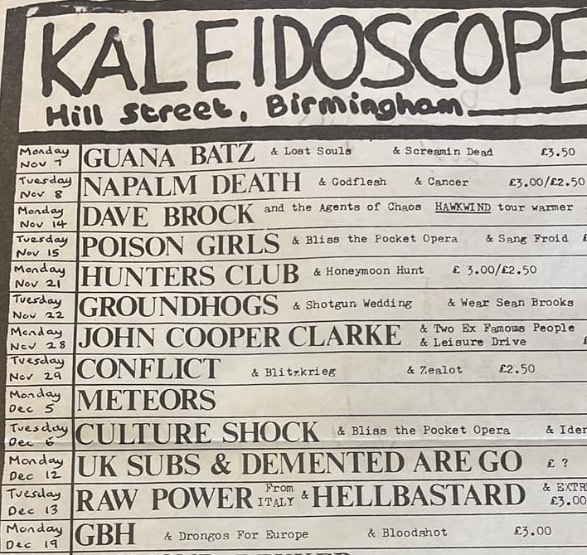 KALEIDOSCOPE
Hill Street, Birmingham
Monday Nov 7 GUANA BATZ & Lost Souls & Screamin Dead £3.50
Tuesday Nov 8 NAPALM DEATH & Godflesh & Cancer £3.00/£2.50
Monday Nov 14 DAVE BROCK and the Agents of Chaos HAWKWIND tour warmer
Tuesday Nov 15 POISON GIRLS & Bliss the Pocket Opera & Sang Froid £
Monday Nov 21 HUNTERS CLUB & Honeymoon Hunt £ 3.00/£2.50
Tuesday Nov 22 GROUNDHOGS & Shotgun Wedding & Wear Sean Brooks
Monday Nov 28 JOHN COOPER CLARKE & Two Ex Famous People & Leisure Drive £
Tuesday Nov 29 CONFLICT & Blitzkrieg & Zealot £2.50
Monday Dec 5 METEORS
Tuesday Dec 6 CULTURE SHOCK & Bliss the Pocket Opera & Iden
Monday Dec 12 UK SUBS & DEMENTED ARE GO £ ?
Tuesday Dec 13 RAW POWER From ITALY & HELLBASTARD & EXTR £3.00
Monday Dec 19 GBH & Drongos For Europe & Bloodshot £3.00